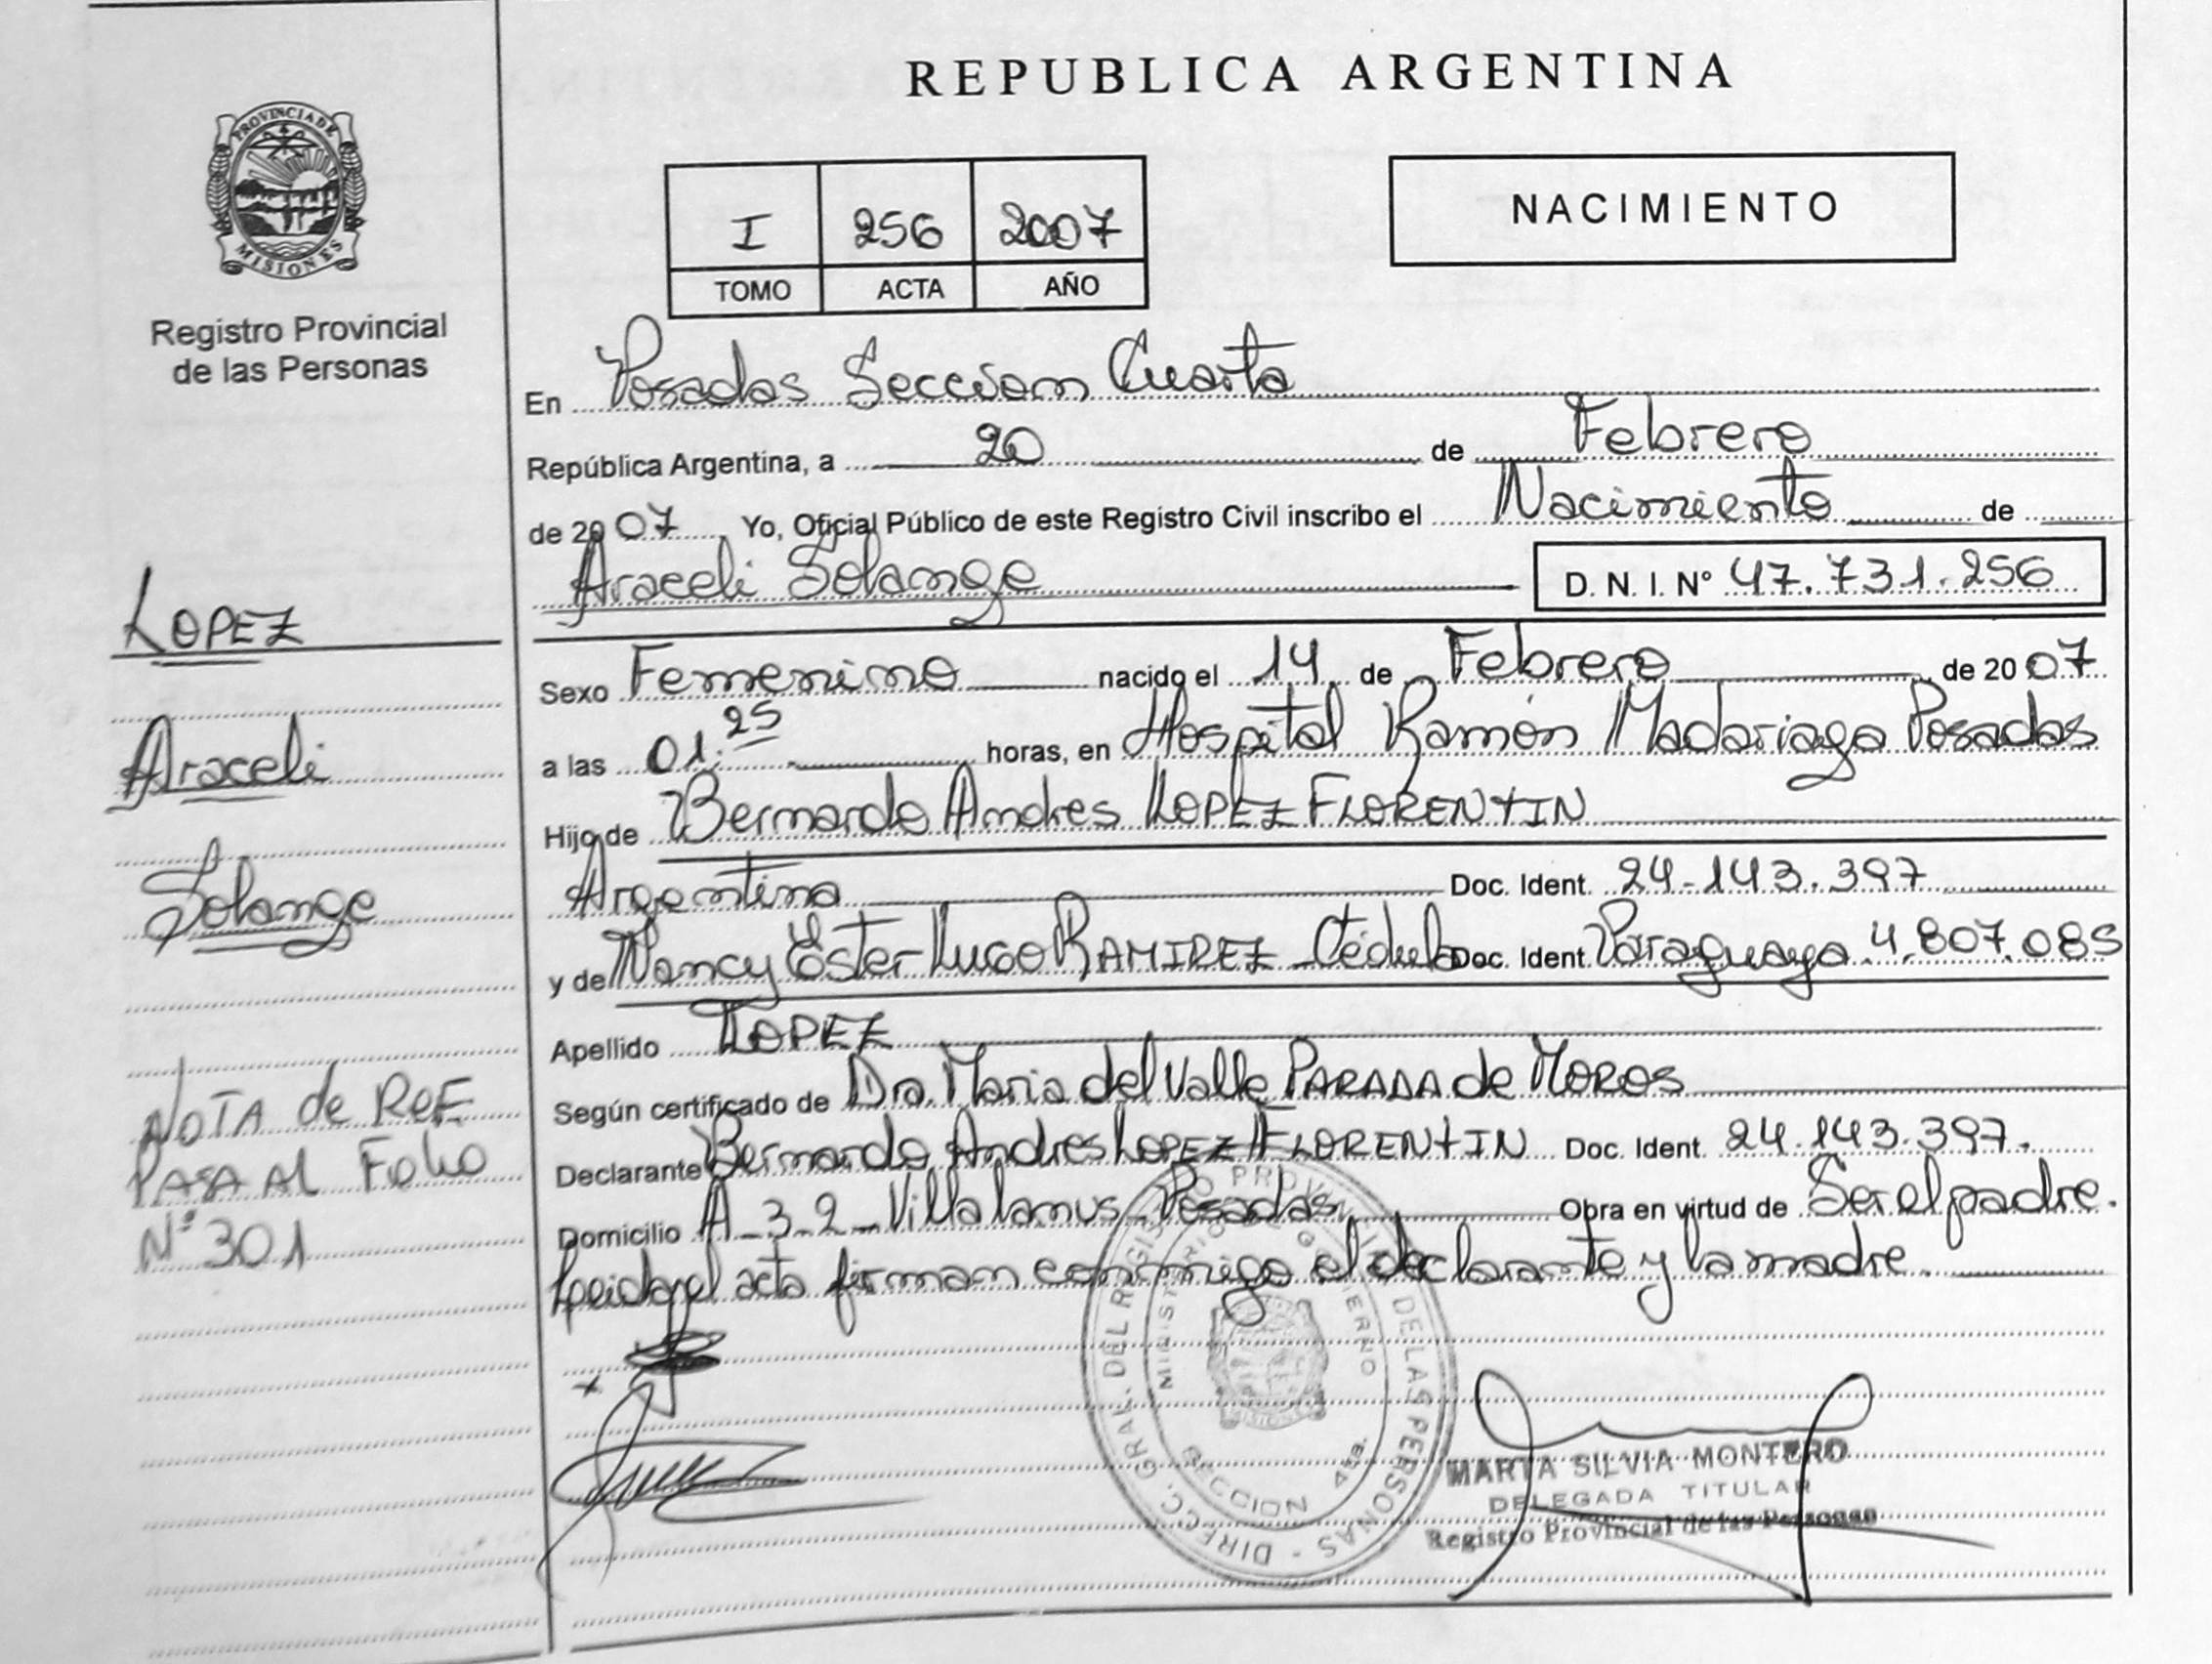 REPUBLICA ARGENTINA
PROVINCIA DE
MISIONES
Registro Provincial
de las Personas
I 256 2007
TOMO ACTA AÑO
NACIMIENTO
En Posadas Seccion Cuarta
República Argentina, a 20 de Febrero
de 2007 Yo, Oficial Público de este Registro Civil inscribo el Nacimiento de
Araceli Solange D. N. I. N° 47.731.256
Sexo Femenino nacido el 14 de Febrero de 2007
a las 01.25 horas, en Hospital Ramón Madariaga Posadas
Hijo de Bernardo Andres LOPEZ FLORENTIN
Argentina Doc. Ident. 24-143.397
y de Nancy Ester LUGO RAMIREZ Cédula Doc. Ident. Paraguaya 4.807.085
Apellido LOPEZ
Según certificado de Dra. Maria del Valle PARADA de MOROS
Declarante Bernardo Andres LOPEZ FLORENTIN Doc. Ident. 24.143.397.
Domicilio A_3_2_Villa Lanus_Posadas Obra en virtud de Ser el padre.
Leida el acta firman conmigo el declarante y la madre.
LOPEZ
Araceli
Solange
NOTA de REF.
PASA AL Folio
N° 301
DIRECC. GRAL. DEL REGISTRO PROVINCIAL DE LAS PERSONAS
MINISTERIO DE GOBIERNO
SECCION 4ta.
MARTA SILVIA MONTERO
DELEGADA TITULAR
Registro Provincial de las Personas